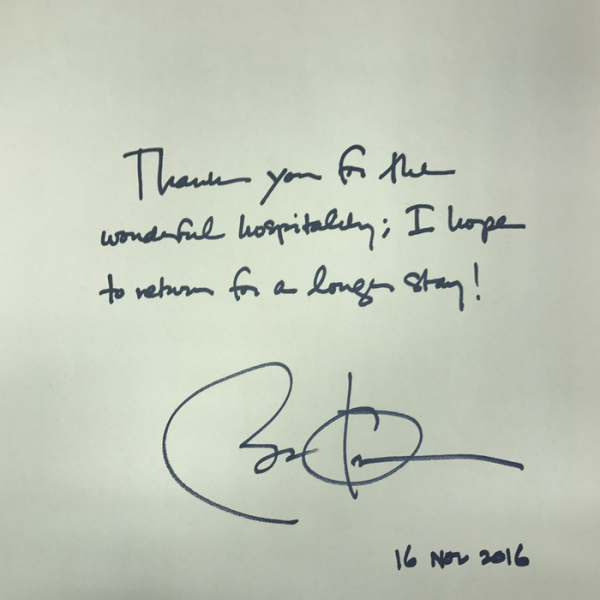 Thank you for the
wonderful hospitality; I hope
to return for a longer stay!
16 Nov 2016